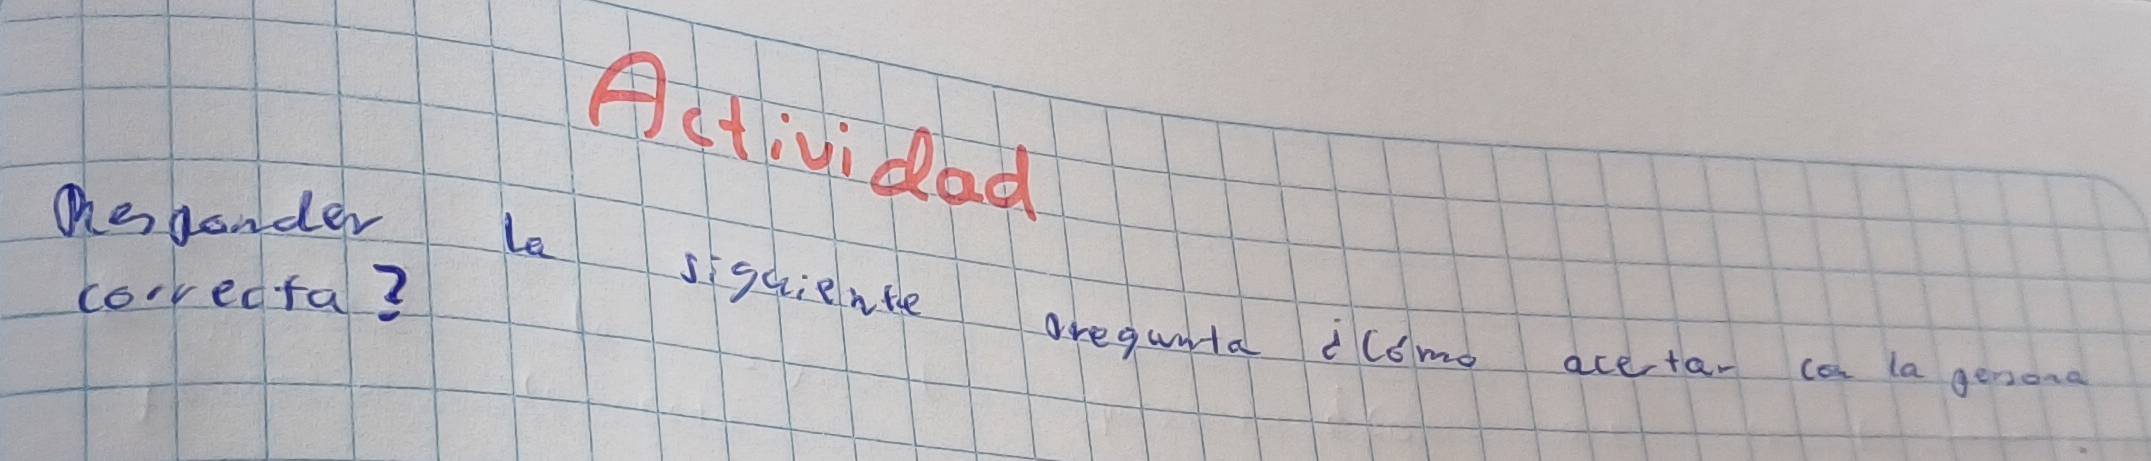 Actividad
Responder la siguiente pregunta ¿Cómo acertar con la persona
correcta?